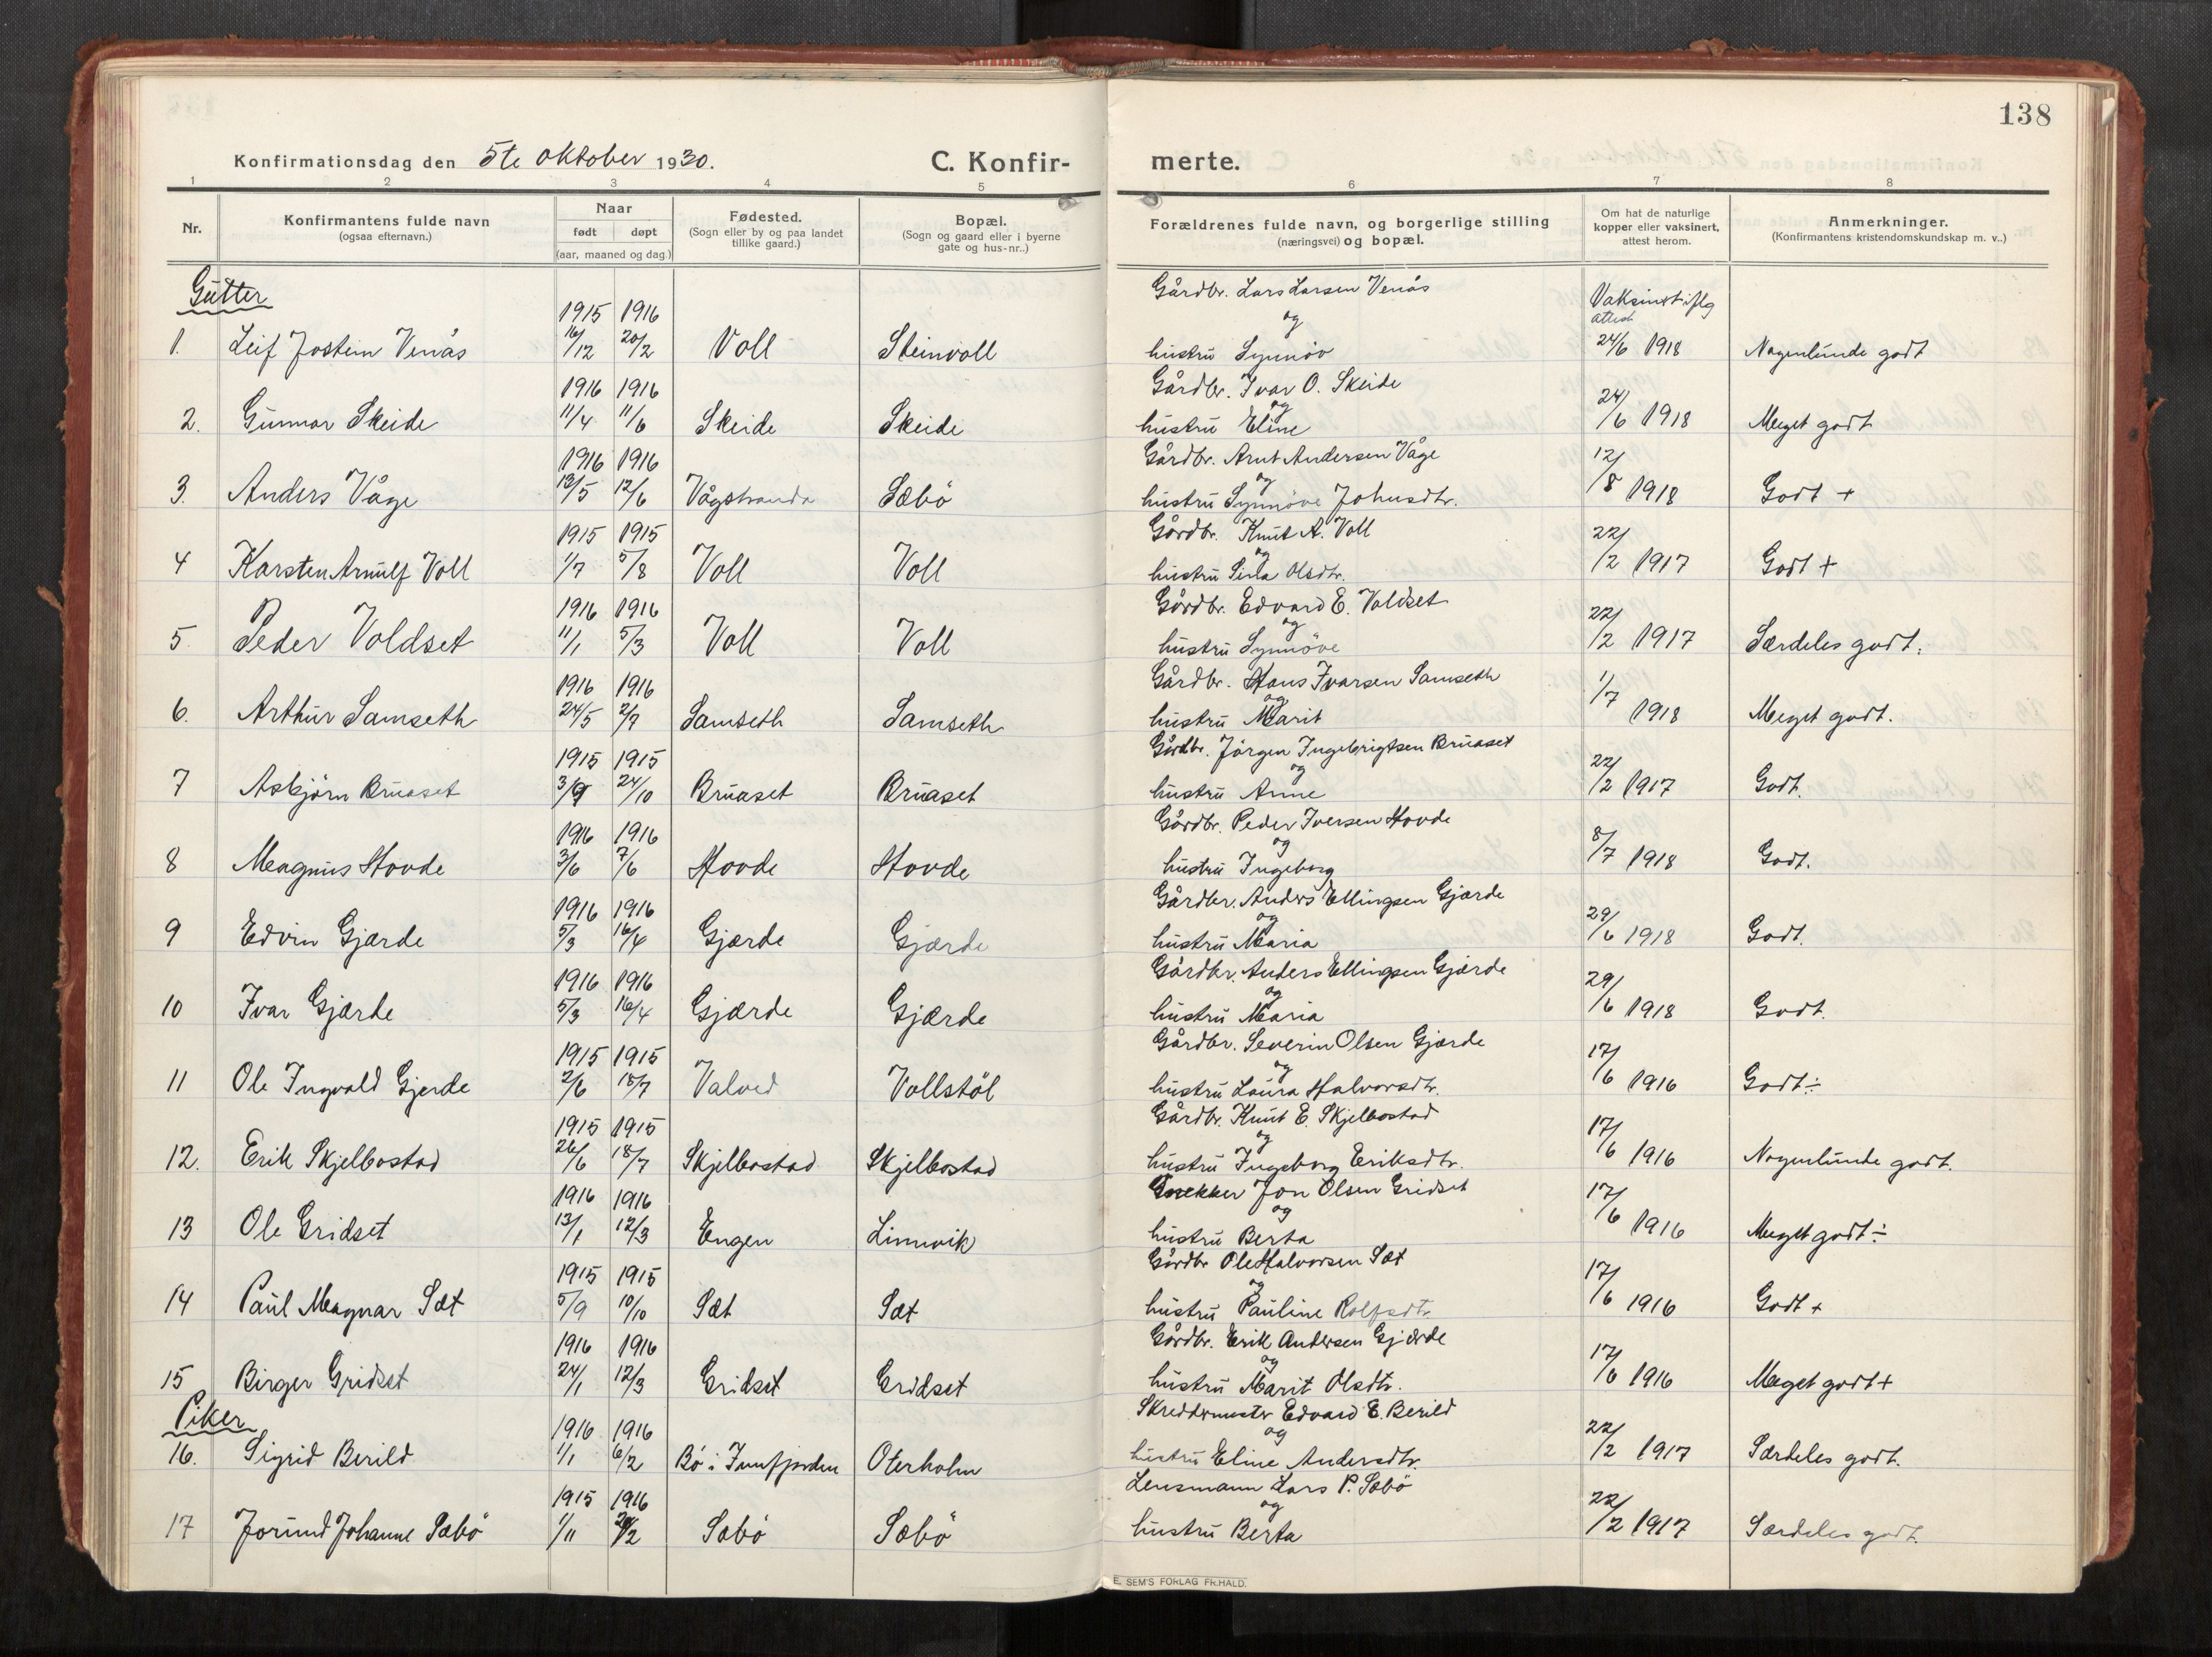 138
Konfirmationsdag den 5te oktober 1930. C. Konfir- merte.
1 2 3 4 5 6 7 8
Nr. Konfirmantens fulde navn (ogsaa efternavn.) Naar født døpt (aar, maaned og dag.) Fødested. (Sogn eller by og paa landet tillike gaard.) Bopæl. (Sogn og gaard eller i byerne gate og hus-nr..) Forældrenes fulde navn, og borgerlige stilling (næringsvei) og bopæl. Om hat de naturlige kopper eller vaksinert, attest herom. Anmerkninger. (Konfirmantens kristendomskundskap m. v..)
Gutter
1915 1916 Gårdbr. Lars Larsen Venås Vaksinert iflg attest
og
1. Leif Jostein Venås 16/12 20/2 Voll Steinvoll hustru Synnöv 24/6 1918 Nogenlunde godt
1916 1916 Gårdbr. Ivar O. Skeide
og
2. Gunnar Skeide 11/4 11/6 Skeide Skeide hustru Eline 24/6 1918 Meget godt
1916 1916 Gårdbr. Arnt Andersen Våge
og
3. Anders Våge 13/5 12/6 Vågstranda Sæbö hustru Synnöve Johnsdtr. 12/8 1918 Godt +
1915 1915 Gårdbr. Knut A. Voll
og
4 Karsten Arnulf Voll 1/7 5/8 Voll Voll hustru Sina Olsdtr. 22/2 1917 Godt +
1916 1916 Gårdbr. Edvard E. Voldset
og
5 Peder Voldset 11/1 5/3 Voll Voll hustru Synnöve 22/2 1917 Særdeles godt.
1916 1916 Gårdbr. Hans Ivarsen Samseth
og
6. Arthur Samseth 24/5 2/7 Samseth Samseth hustru Marit 1/7 1918 Meget godt.
1915 1915 Gårdbr. Jörgen Ingebrigtsen Bruaset
og
7 Asbjörn Bruaset 3/9 24/10 Bruaset Bruaset hustru Anne 22/2 1917 Godt.
1916 1916 Gårdbr. Peder Iversen Hovde
og
8 Magnus Hovde 3/6 7/6 Hovde Hovde hustru Ingeborg 8/7 1918 Godt.
1916 1916 Gårdbr. Anders Ellingsen Gjærde
og
9 Edvin Gjærde 5/3 16/4 Gjærde Gjærde hustru Maria 29/6 1918 Godt.
1916 1916 Gårdbr. Anders Ellingsen Gjærde
og
10 Ivar Gjærde 5/3 16/4 Gjærde Gjærde hustru Maria 29/6 1918 Godt.
1915 1915 Gårdbr. Severin Olsen Gjærde
og
11 Ole Ingvald Gjerde 2/6 18/7 Valved Vollstöl hustru Laura Halvorsdtr. 17/6 1916 Godt ÷
1915 1915 Gårdbr. Knut E. Skjelbostad
og
12. Erik Skjelbostad 26/6 18/7 Skjelbostad Skjelbostad hustru Ingeborg Eriksdtr. 17/6 1916 Nogenlunde godt.
1916 1916 Snekker Jon Olsen Gridset
og
13 Ole Gridset 13/1 12/3 Engen Linnvik hustru Berta 17/6 1916 Meget godt ÷
1915 1915 Gårdbr Ole Halvorsen Sæt
og
14 Paul Magnar Sæt 5/9 10/10 Sæt Sæt hustru Pauline Rolfsdtr 17/6 1916 Godt +
1916 1916 Gårdbr. Erik Andersen Gjærde
og
15 Birger Gridset 24/1 12/3 Gridset Gridset hustru Marit Olsdtr. 17/6 1916 Meget godt +
Piker
1916 1916 Skreddermester Edvard E. Berild
og
16. Sigrid Berild 1/1 6/2 Bö i Innfjorden Oterholm hustru Eline Andersdtr. 22/2 1917 Særdeles godt.
1915 1916 Lensmann Lars P. Sæbö
og
17 Jorund Johanne Sæbö 1/11 Sæbö Sæbö hustru Berta 22/2 1917 Særdeles godt.
E. SEM'S FORLAG FR.HALD.